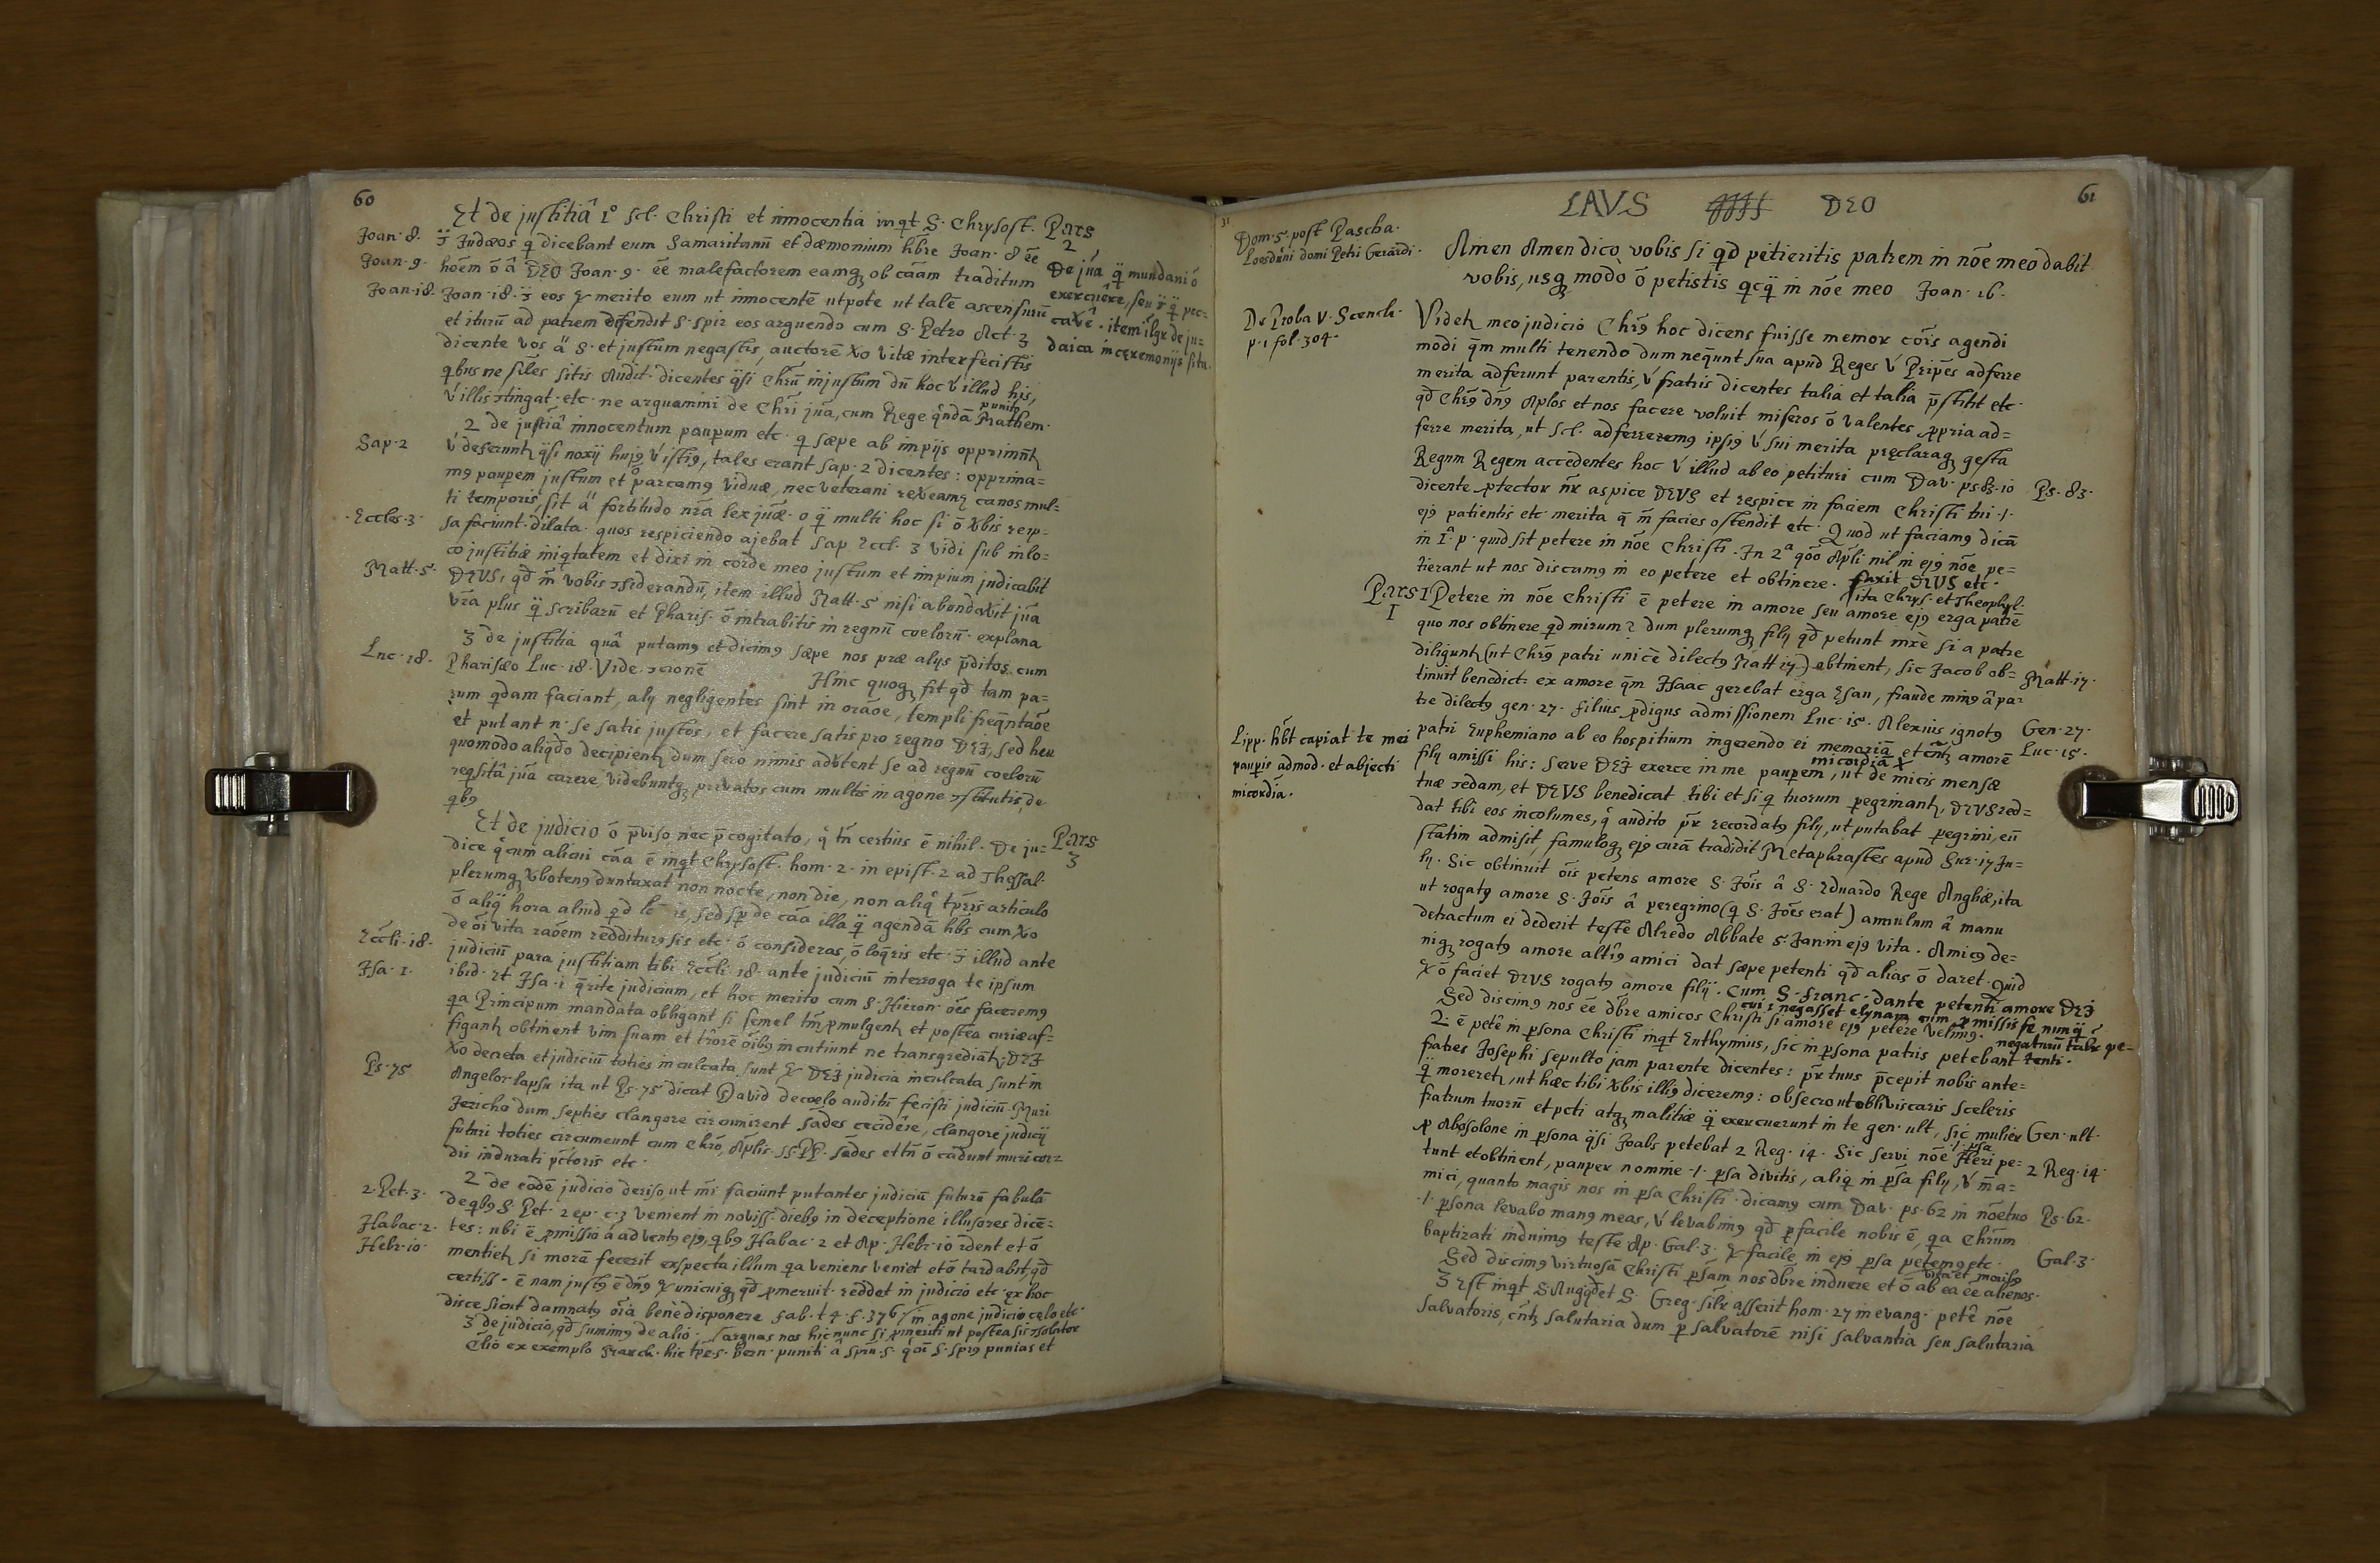 60
Et de justitiâ 1° scl. Christi et innocentia inqt S. Chrysost. Pars 2
Joan. 8. Judæos q dicebant eum Samaritanū et dæmonium hbre Joan. 8 ēē
Joan. 9. hoēm ō â DEO Joan. 9. ēē malefactorem eamq ob cāam traditum
Joan. 18. Joan. 18. eos merito eum ut innocentē utpote ut talē ascensurū
De jūa q mundani ō
exercuêre, seu q pec=
cavê. item de ju=
daica in cęremonijs sita.
et iturū ad patrem difendit S. Spir eos arguendo cum S. Petro Act. 3
dicente vos S. et justum negastis, auctorē vitæ interfecistis
qbus ne sīles sitis Audit. dicentes qsi Chrū injustum dū hoc v illud his,
v illis tingat. etc. ne arguamini de Chri jūa, cum Rege Mathem. punito
2 de justiâ innocentum paupum etc. q sæpe ab impijs opprimūt
Sap. 2 v deferunt qsi noxij hujq v istiq, tales erant Sap. 2 dicentes: opprima=
mq paupem justum et ō parcamq viduæ, nec veterani revęamq canos mul=
ti temporis, sit fortitudo nra lex jūæ. o q multi hoc si ō vbis reip=
Eccles. 3. sa faciunt. dilata. quos respiciendo ajebat Sap Eccl. 3 vidi sub in lo=
co justitiæ iniqtatem et dixi in corde meo justum et impium judicabit
Matt. 5. DEUS, qd vobis siderandū, item illud Matt. 5 nisi abundavit jūa
vra plus q scribarū et Pharis. ō intrabitis in regnū coelorū. explana
3 de justitia quâ putamq et dicimq sæpe nos præ alijs p̄ditos cum
Luc. 18. Pharisæo Luc. 18. Vide cionē Hinc quoq fit qd tam pa=
rum qdam faciant, alij negligentes sint in orāoe, templi freqntaōe
et putant n. se satis justos, et facere satis pro regno DEI, sed heu
quomodo aliqdo decipient dum sero nimis advtent se ad regnū coelorū
reqsitâ jūa carere, videbuntq privatos cum multis in agone stitutis, de
qbq
Et de judicio ō p̄viso nec p̄cogitato, q tn certius ē nihil. De ju= Pars 3
dice qcum alicui cāa ē inqt Chrysost. hom. 2. in epist. 2 ad Thessal.
plerumq vbotenq duntaxat non nocte, non die, non aliq tpris articulo
ō aliq hora aliud qd is, sed sp de cāa illa q agenda hbs cum
de ōi vita raōem redditurq sis etc. ō consideras, ō loqris etc. illud ante
Eccli. 18. judiciū para justitiam tibi Eccli. 18. ante judiciū interroga te ipsum
Isa. 1. ibid. et Isa. 1 qrite judicium, et hoc merito cum S. Hieron. oēs faceremq
qa Principum mandata obligant si semel tm pmulgent et postea curiæ af=
figant obtinent vim suam et trorē oībq incutiunt ne transgrediāt, DEI
decreta et judiciū toties inculcata sunt DEI judicia inculcata sunt in
Ps. 75 Angelor lapsu ita ut Ps. 75 dicat David de coelo auditū fecisti judiciū. Muri
Jericho dum septies clangore circumirent sādes cecidêre, clangore judicij
futuri toties circumeunt cum Chrō, Aplis SSPP. sādes et tn ō cadunt muri cor=
dis indurati pctoris etc.
2 de eodē judicio deriso, ut mi faciunt putantes judiciū futurū fabulā
2. Pet. 3. de qbq S. Pet. 2 ep. c. 3 venient in noviss. diebq in deceptione illusores dicē=
Habac. 2. tes: ubi ē pmissio a adventq ejq, qbq Habac. 2 et Ap. Hebr. 10 rdent et ō
Hebr. 10. mentiet si morā fecerit exspecta illum qa veniens veniet et ō tardabit, qd
certiss. ē nam justq ē dnq unicuiq qd pmeruit reddet in judicio etc. ex hoc
disce sicut damnatq oīa benè disponere fab. t 4. f. 376 in agone judicio cęlo etc.
3 de judicio, qd sumimq de alio. arguas nos hic nunc si pmeriti ut postea sis solator
Clio ex exemplo Franck. hic tpe S. Bern. puniti â spiu S. S. spiq punias et
LAUS DEO
61
31
Dom. 5. post Pascha.
Loesduni domi Petri Gerardi.
Amen Amen dico vobis si qd petieritis patrem in nōe meo dabit
vobis, usq modò ō petistis qcq in nōe meo Joan. 16.
De Proba v. Scench.
p. 1 fol. 304.
Videt meo judicio Chrq hoc dicens fuisse memor coīs agendi
modi qm multi tenendo dum nequnt sua apud Reges v Pripes adferre
merita adferunt parentis, v fratris dicentes talia et talia p̄stitit etc.
qd Chrq dnq Aplos et nos facere voluit miseros ō valentes ppria ad=
ferre merita, ut scl. adferremq ipsiq v sui merita pręclaraq gesta
Regum Regem accedentes hoc v illud ab eo petituri cum Dav. ps. 83. 10 Ps. 83.
dicente ptector nr aspice DEUS et respice in faciem Christi tui .i.
ejq patientis etc. merita q facies ostendit etc. Quod ut faciamq dicā
in 1. p. quid sit petere in nōe Christi. In 2ª Apli nil in ejq nōe pe=
tierant ut nos discamq in eo petere et obtinere. faxit DEUS etc.
ita Chrys. et Theophyl.
Pars 1 Petere in nōe Christi ē petere in amore seu amore ejq erga patrē
quo nos obtinere qd mirum? dum plerumq filij qd petunt a patre
diligunt (ut Chrq patri unicè dilectq Matt 17) obtinent, sic Jacob ob= Matt. 17.
tinuit benedict. ex amore qm Isaac gerebat erga Esau, fraude minq â pa=
tre dilectq gen. 27. filius pdigus admissionem Luc. 15. Alexius ignotq Gen. 27.
patri Euphemiano ab eo hospitium ingerendo ei memoriā et amorē Luc. 15.
Lipp. hbt capiat te mei
paupis admod. et abjecti
micordia.
filij amissi his: serve DEI exerce in me paupem micordiā, ut de micis mensæ
tuæ edam, et DEUS benedicat tibi et si q tuorum pegrinant, DEUS red=
dat tibi eos incolumes, q audito pr recordatq filij, ut putabat pegrini, eū
statim admisit, famuloq ejq curā tradidit Metaphrastes apud Sur. 17 Ju=
lij. Sic obtinuit oīs petens amore S. Joīs â S. Eduardo Rege Angliæ, ita
ut rogatq amore S. Joīs â peregrino (q S. Joēs erat) annulum â manu
detractum ei dederit teste Alredo Abbate 5. Jan. in ejq vita. Amicq de=
niq rogatq amore altiq amici dat sæpe petenti qd alias ō daret. Quid
ō faciet DEUS rogatq amore filij. Cum S. Franc. dante petenti amore DEI
cui negasset elynam pmissis se nunq
negaturū talr pe=
tenti.
Sed discimq nos ēē dbre amicos Christi si amore ejq petere velimq.
2. ē petê in psona Christi inqt Euthymius, sic in psona patris petebant
fratres Josephi sepulto jam parente dicentes: pr tuus p̄cepit nobis ante=
q moreret, ut hæc tibi vbis illiq diceremq: obsecro ut obliviscaris sceleris
fratrum tuorū et pcti atq malitiæ q exercuerunt in te gen. ult, sic mulier Gen. ult.
p Absolone in psona qsi Joabs petebat 2 Reg. 14. Sic servi nōe .i. psa Heri pe= 2 Reg. 14.
tunt et obtinent, pauper nomine .i. psa divitis, aliq in psa filij, v ma=
mici, quanto magis nos in psa Christi. dicamq cum Dav. ps. 62 in nōe tuo Ps. 62.
.i. psona levabo manq meas, v levabimq qd pfacile nobis ē, qa Chrum
baptizati induimq teste Ap. Gal. 3. facile in ejq psa petemq etc. Gal. 3.
Sed discimq virtuosā Christi psam nos dbre induere et ō ab ea vita et moribq ēē alienos.
3 Est inqt S. Aug. et S. Greg. silr asserit hom. 27 in evang. petê nōe
Salvatoris, salutaria dum p salvatorē nisi salvantia seu salutaria